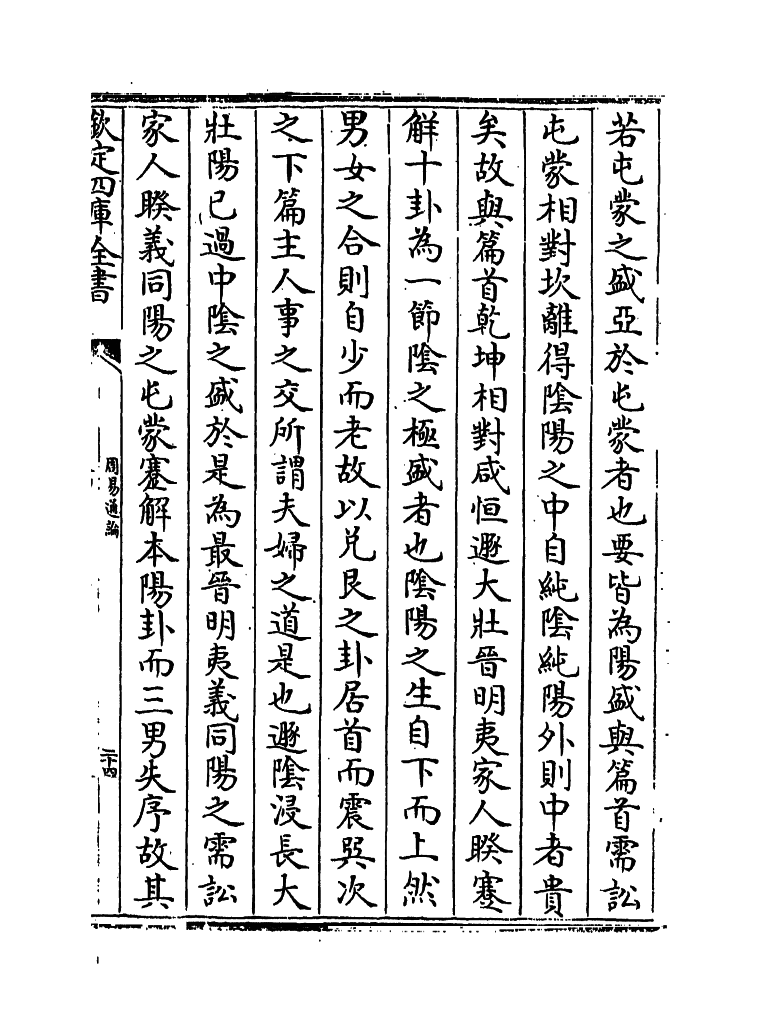 若屯蒙之盛亞於屯蒙者也要皆為陽盛與篇首需訟
屯蒙相對坎離得陰陽之中自純陰純陽外則中者貴
矣故與篇首乾坤相對咸恒遯大壯晉明夷家人睽蹇
解十卦為一節陰之極盛者也陰陽之生自下而上然
男女之合則自少而老故以兌艮之卦居首而震巽次
之下篇主人事之交所謂夫婦之道是也遯陰浸長大
壯陽已過中陰之盛於是為最晉明夷義同陽之需訟
家人睽義同陽之屯蒙蹇解本陽卦而三男失序故其
欽定四庫全書
周易通論
二十四